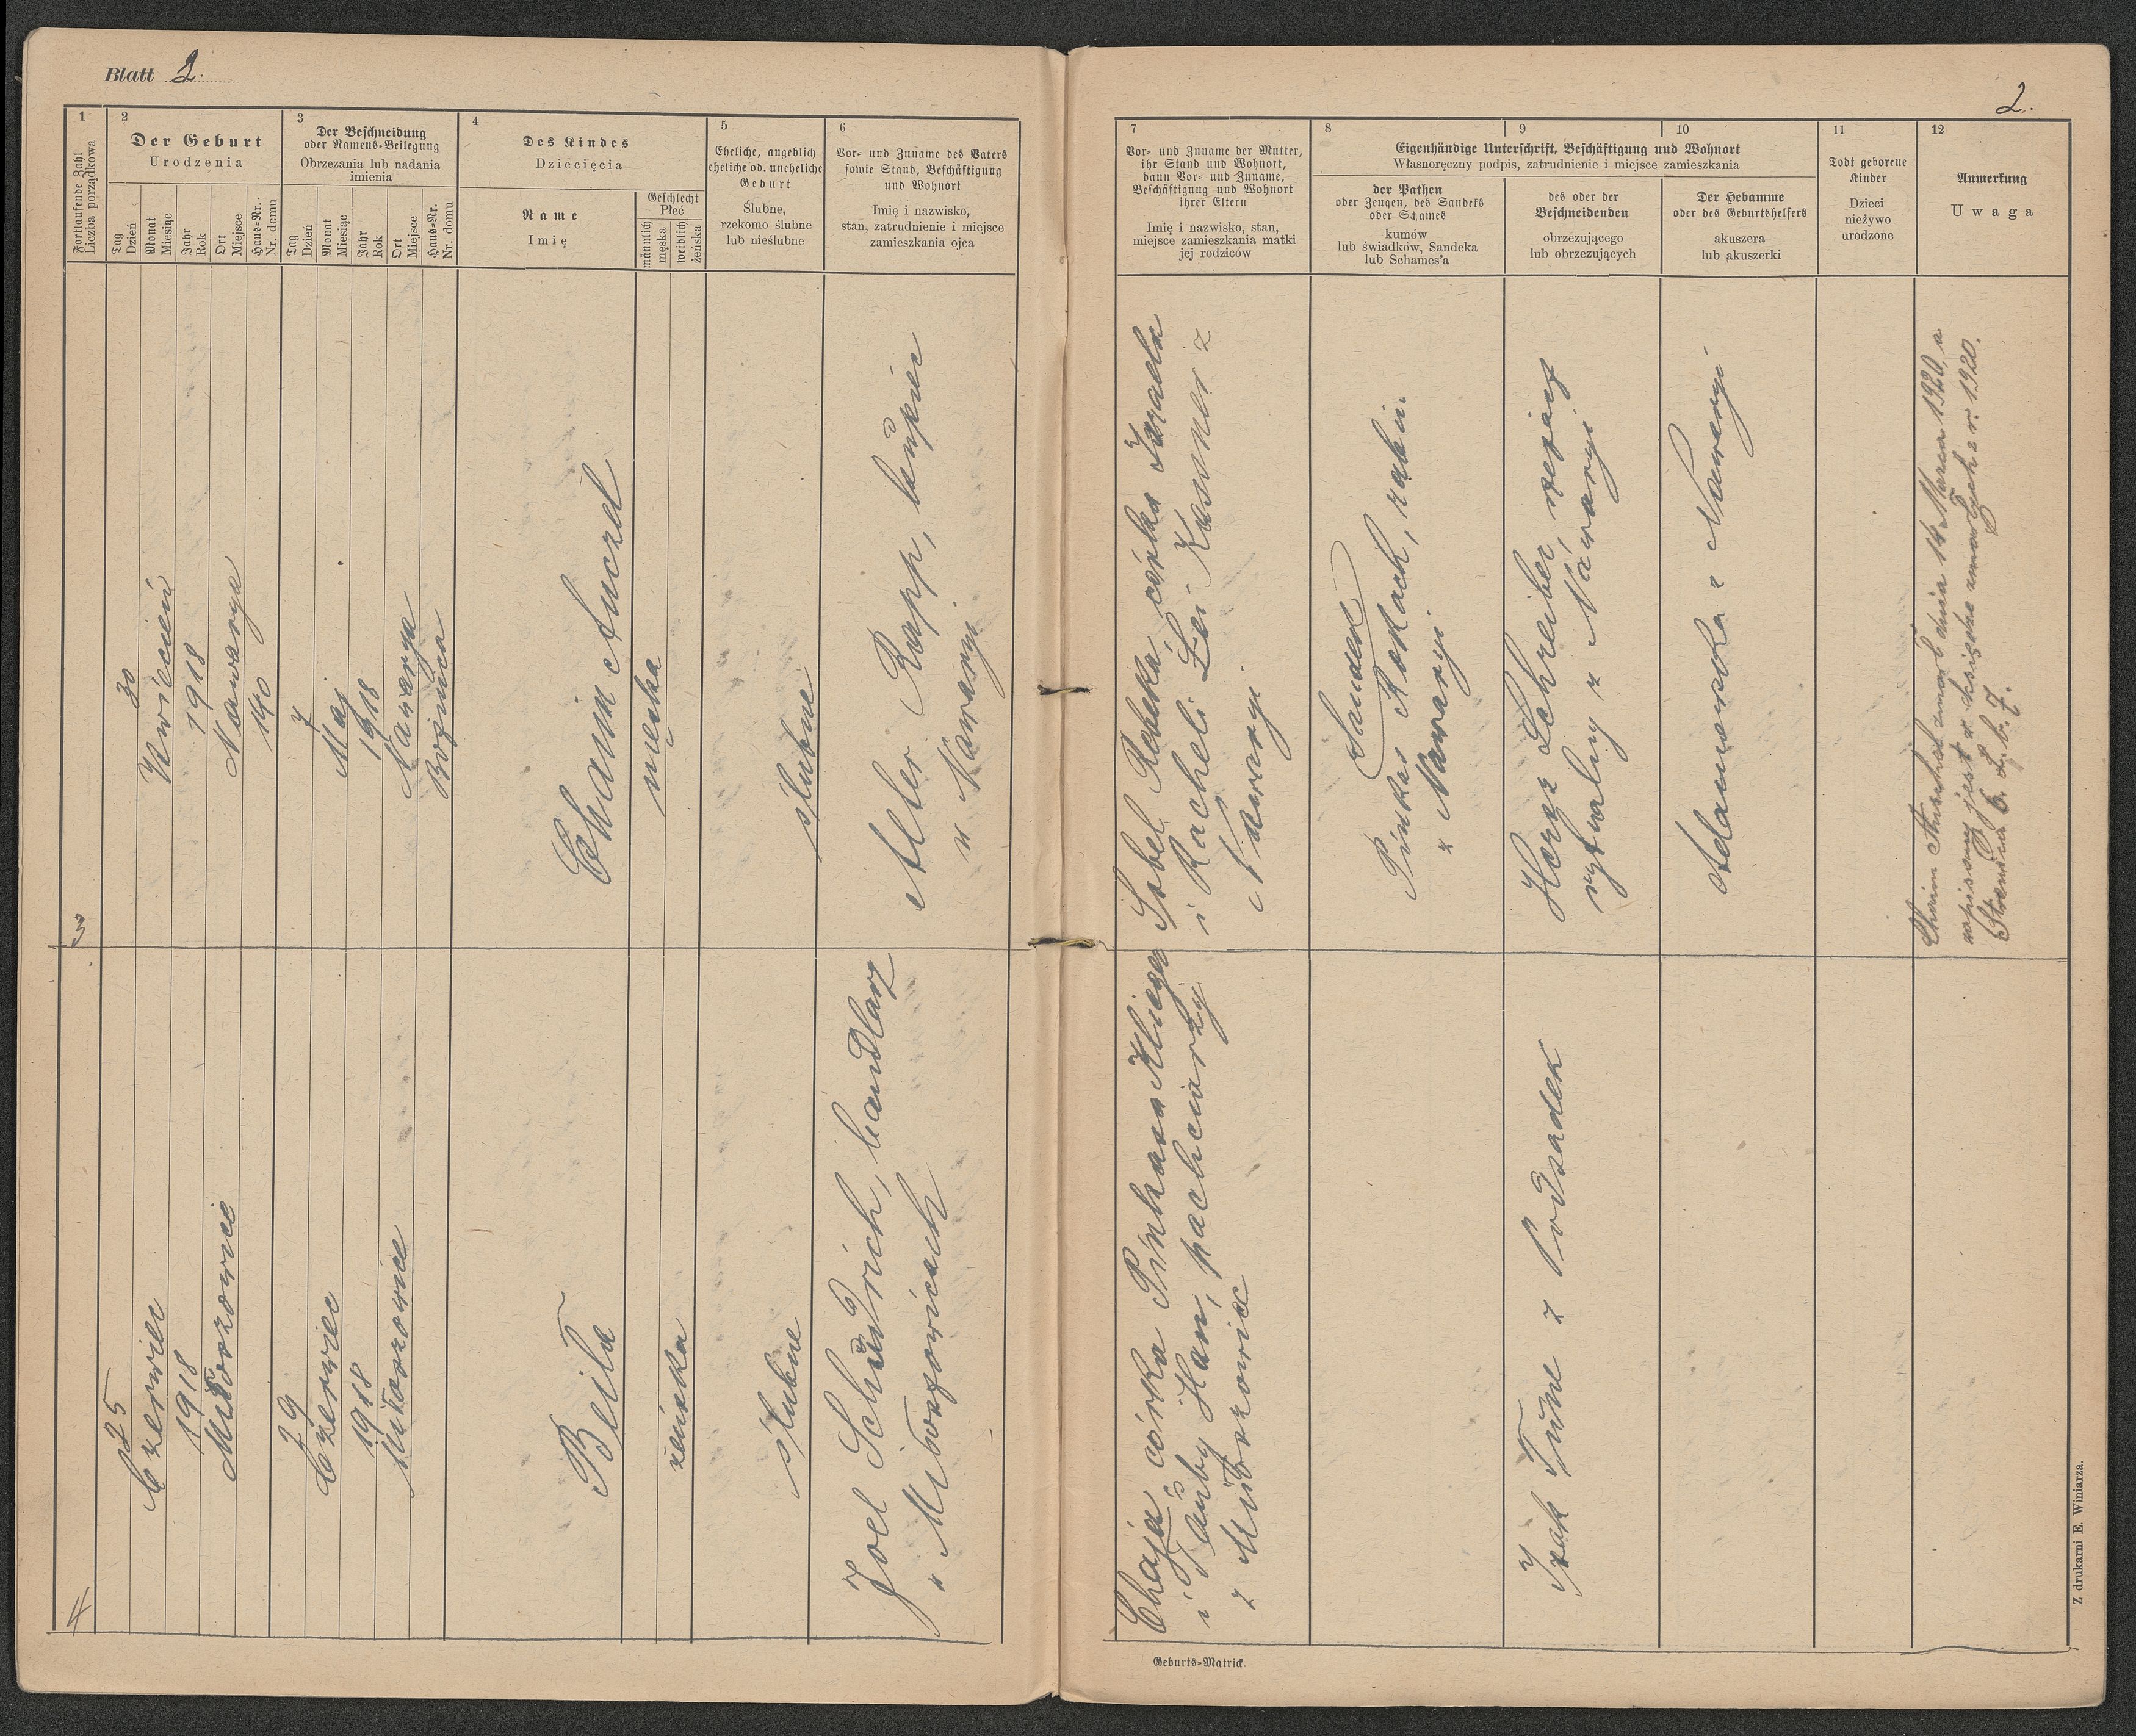 Blatt 2.
1
Fortlaufende Zahl
Liczba porządkowa
2
Der Geburt
Urodzenia
Tag
Dzień
Monat
Miesiąc
Jahr
Rok
Ort
Miejsce
Haus-Nr.
Nr. domu
3
Der Beschneidung
oder Namens-Beilegung
Obrzezania lub nadania
imienia
Tag
Dzień
Monat
Miesiąc
Jahr
Rok
Ort
Miejsce
Haus-Nr.
Nr. domu
4
Des Kindes
Dziecięcia
Name
Imię
Geschlecht
Płeć
männlich
męska
weiblich
żeńska
5
Eheliche, angeblich
eheliche od. uneheliche
Geburt
Ślubne,
rzekomo ślubne
lub nieślubne
6
Vor- und Zuname des Vaters
sowie Stand, Beschäftigung
und Wohnort
Imię i nazwisko,
stan, zatrudnienie i miejsce
zamieszkania ojca
3
30
Kwiecień
1918
Nawarya
140
7
Maj
1918
Nawarya
Bożnica
Chaim Anczel
męska
ślubne
Alter Rapp, kupiec
w Nawaryi
4
25
Czerwiec
1918
Mikoszowice
29
Czerwiec
1918
Beila
żeńska
ślubne
Joel Schudrich, handlarz
w
2.
7
Vor- und Zuname der Mutter,
ihr Stand und Wohnort,
dann Vor- und Zuname,
Beschäftigung und Wohnort
ihrer Eltern
Imię i nazwisko, stan,
miejsce zamieszkania matki
jej rodziców
Eigenhändige Unterschrift, Beschäftigung und Wohnort
Własnoręczny podpis, zatrudnienie i miejsce zamieszkania
8
der Pathen
oder Zeugen, des Sandeks
oder Schames
kumów
lub świadków, Sandeka
lub Schames'a
9
des oder der
Beschneidenden
obrzezującego
lub obrzezujących
10
Der Hebamme
oder des Geburtshelfers
akuszera
lub akuszerki
11
Todt geborene
Kinder
Dzieci
nieżywo
urodzone
12
Anmerkung
Uwaga
Sobel Rebeka córka Izraela
i Racheli Lei Kassner z
Nawaryi
Sandek
Pinkas Rokach, rabin
z Nawaryi
Herz Schreiber, rzezak
rytualny z Nawaryi
Adamowska z Nawaryi
Chaim zmarł dnia 14 Marca 1920, a
zapisany jest w księdze zmarłych z r. 1920.
Stronica 6. L. b. 7.
Chaja córka Pinkasa
i Tauby Han, pachciarzy
z
Izak Tune z Podsadek
Geburts-Matrick.
Z drukarni E. Winiarza.